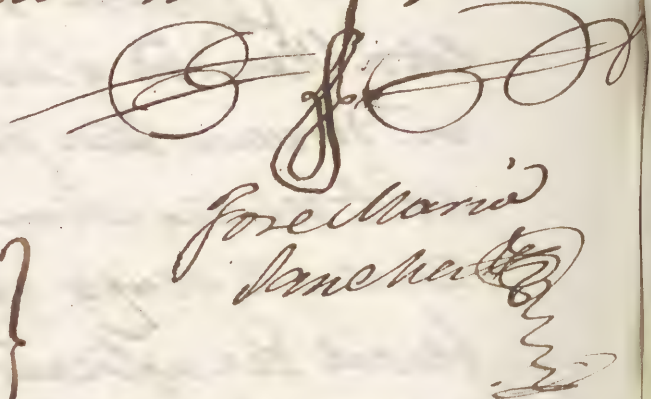 Jose Maria
Sanchez